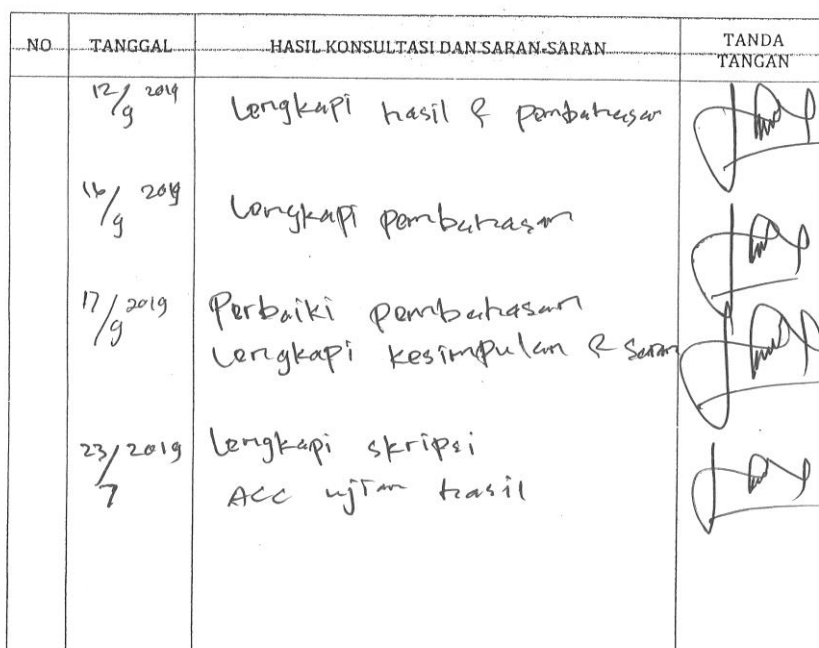 NO TANGGAL HASIL KONSULTASI DAN SARAN-SARAN TANDA TANGAN
12/9 2019 Lengkapi hasil & pembahasan
16/9 2019 Lengkapi pembahasan
17/9 2019 Perbaiki pembahasan
Lengkapi kesimpulan & saran
23/7 2019 Lengkapi skripsi
ACC ujian hasil